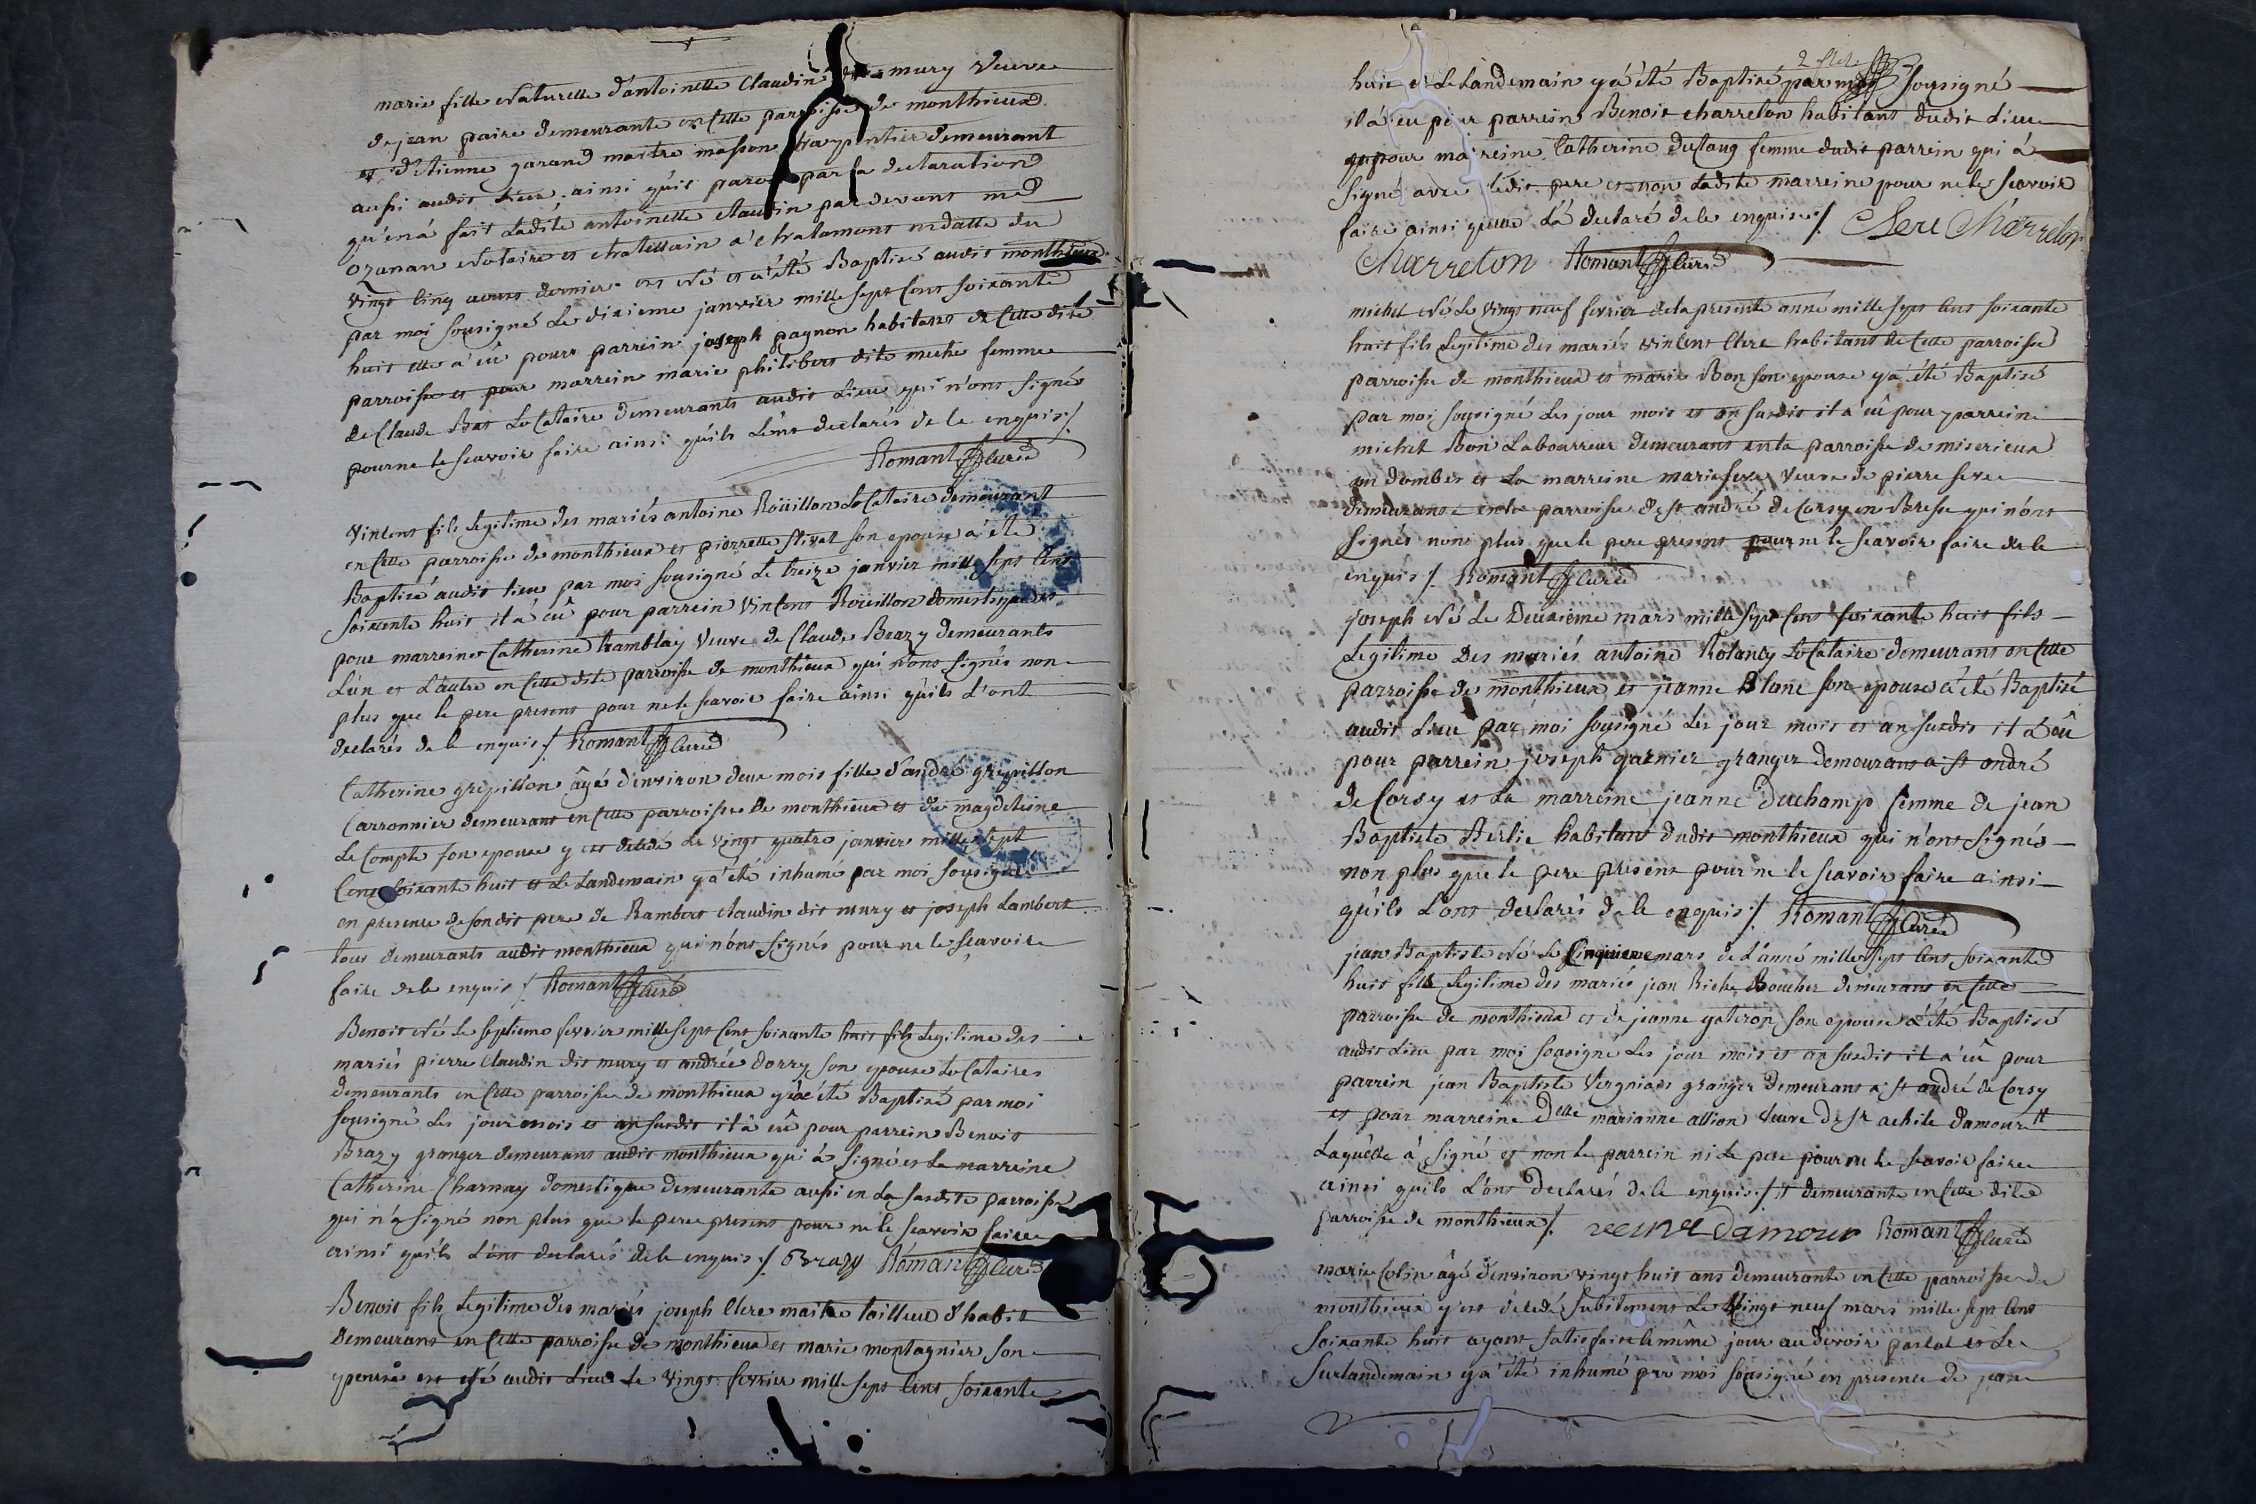 marie fille Naturelle d'antoinette Claudin mury Veuve
de jean paire demeurante en Cette parroisse de monthieux
et d'Etienne garand maitre masson Charpentier demeurant
aussi audit Lieu ainsi qu'il paroit par sa declaration
qu'en a fait Ladite antoinette Claudin par devant me
ozanan Notaire et chatellain a Chalamont en datte du
vingt Cinq aoust dernier est Né et a été Baptisé audit monthieux
par moi sousigné Le dixieme janvier mille sept Cent soixante
huit elle a eû pour parrein joseph pagnon habitant de Cette dite
parroisse et pour marrein marie philibert dite meche femme
de Claude Bas LoCataire demeurants audit Lieu qui n'ont signés
pour ne le scavoir faire ainsi qu'ils L'ont declarés de le enquis /.
Romant Curé
Vincent fils Legitime des mariés antoine Roüillon LoCataire demeurant
en Cette parroisse de monthieux et pierrette son epouse a été
Baptisé audit lieu par moi sousigné Le treize janvier mille sept Cent
soixente huit il a eû pour parrein Vincent Roüillon domestique et
pour marreine Catherine tramblay Veuve de Claude Brazy demeurants
L'un et L'autre en Cette dite parroisse de monthieux qui n'ont signés non
plus que le pere present pour ne le scavoir faire ainsi qu'ils L'ont
declarés de le enquis /. Romant Curé
Catherine grepillon âgé d'environ deux mois fille d'andré grepillon
Carronnier demeurant en Cette parroisse de monthieux et de magdeleine
Le Compte son epouse y est decedé Le vingt quatre janvier mille sept
Cent soixante huit et Le Landemain y a été inhumé par moi sousigné
en presence de son dit pere de Rambert Claudin dit mury et joseph Lambert
tous demeurants audit monthieux qui n'ont signés pour ne le scavoir
faire de le enquis /. Romant Curé
Benoit Né Le septieme fevrier mille sept Cent soixante huit fils Legitime des
mariés pierre Claudin dit mury et andrée Dorry son epouse LoCataires
demeurants en Cette parroisse de monthieux y a été Baptisé par moi
sousigné Les jour mois et an susdit il a eû pour parrein Benoit
Brazy granger demeurant audit monthieux qui a signé et La marreine
Catherine Charnay domestique demeurante aussi en La susdite parroisse
qui n'a signé non plus que le pere present pour ne le scavoir faire
ainsi qu'ils L'ont declarés de le enquis /. Brazy Romant Curé
Benoit fils Legitime des mariés joseph Clere maitre tailleur d'habit
demeurant en Cette parroisse de monthieux et marie montagnier son
epouse est Né audit Lieu Le vingt fevrier mille sept Cent soixante
huit et Le Landemain y a été Baptisé par moi sousigné
il a eu pour parrein Benoit charreton habitant dudit Lieu
et pour marreine Catherine duclaug femme dudit parrein qui a
signé avec ledit pere et non Ladite marreine pour ne le scavoir
faire ainsi quelle L'a declaré de le enquise /. Clere Charreton
Charreton Romant Curé
michel Né Le vingt neuf fevrier de la presente anné mille sept Cent soixante
huit fils Legitime des mariés vincent Clere habitant de Cette parroisse
parroisse de monthieux et marie Bon son epouse y a été Baptisé
par moi sousigné Les jour mois et an susdit il a eû pour parrein
michel Bon Labourreur demeurant en la parroisse de miserieux
en dombes et La marreine marie seve Veuve de pierre seve
demeurante en la parroisse de st andré de Corsy en Bresse qui n'ont
signés non plus que le pere present pour ne le scavoir faire de le
enquis /. Romant Curé
joseph Né Le Deuxieme mars mille sept Cent soixante huit fils
Legitime Des mariés antoine Rolandy LoCataire demeurant en Cette
parroisse de monthieux et jeanne Blanc son epouse a été Baptisé
audit Lieu par moi sousigné Les jour mois et an susdit il a eû
pour parrein joseph garnier granger demeurant a st andré
de Corsy et La marreine jeanne Duchamp femme de jean
Baptiste Berlie habitant dudit monthieux qui n'ont signés
non plus que le pere present pour ne le scavoir faire ainsi
qu'ils L'ont declarés de le enquis /. Romant Curé
jean Baptiste Né Le Cinquieme mars de L'anné mille sept Cent soixante
huit fils Legitime des mariés jean Riche Boucher demeurant en Cette
parroisse de monthieux et de jeanne gateron son epouse a été Baptisé
audit Lieu par moi sousigné Les jour mois et an susdit il a eû pour
parrein jean Baptiste Vergniais granger demeurant a st andré de Corsy
et pour marreine Delle marianne allion Veuve de sr achile damour #
Laquelle a signé et non le parrein ni Le pere pour ne le scavoir faire
ainsi quils L'ont Declarés de le enquis /. # demeurante en Cette dite
parroisse de monthieux /. veuve Damour Romant Curé
marie Colin âgé d'environ vingt huit ans demeurante en Cette parroisse de
monthieux y est decedé subitement Le Vingt neuf mars mille sept Cent
soixante huit ayant satisfait le même jour au devoir pascal et Le
surlandemain y a été inhumé par moi sousigné en presence de jean